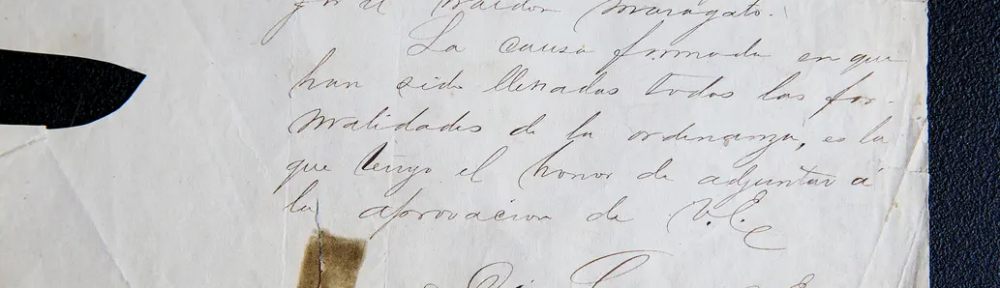 Maragato.
La causa formada en que
han sido llenadas todas las for-
malidades de la ordenanza, es la
que tengo el honor de adjuntar á
la aprovacion de V.E.